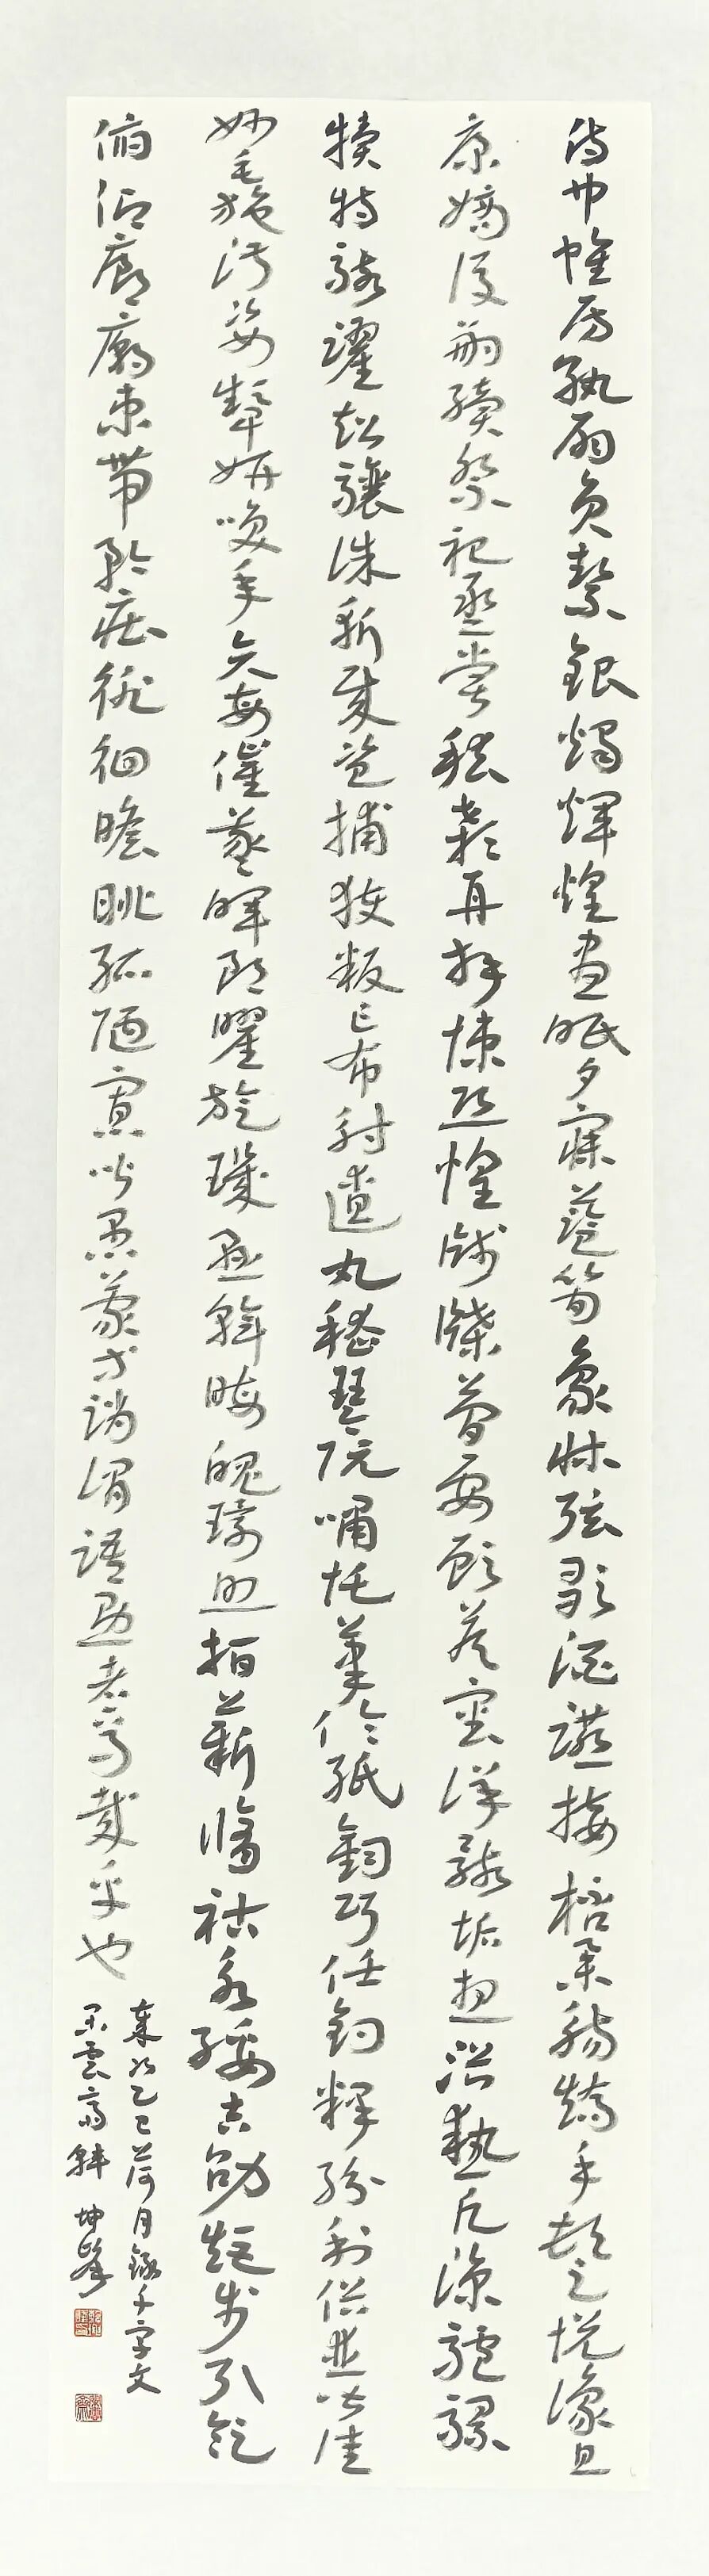 侍巾帷房紈扇員絜銀燭煒煌晝眠夕寐藍筍象牀弦歌酒讌接桮舉觴矯手頓足悅豫且
康嫡後嗣續祭祀烝嘗稽顙再拜悚恐惶牋牒簡要顧答審詳骸垢想浴熱願涼驢騾
犢特駭躍超驤誅斬賊盜捕獲叛亡布射遼丸嵇琴阮嘯恬筆倫紙鈞巧任釣釋紛利俗並皆佳
妙毛施淑姿顰妍咲年矢每催羲暉朗曜旋璣懸斡晦魄環照指薪脩祜永綏吉劭矩步引領
俯仰廊廟束帶矜莊徘徊瞻眺孤陋寡聞愚蒙等誚謂語助者焉哉乎也
歲次乙巳荷月錄千字文
墨雲高軒坤峰